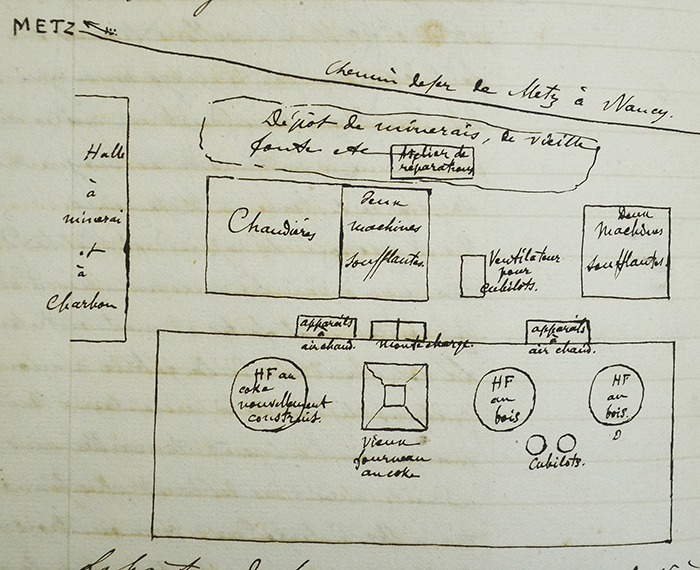 METZ
Chemin de fer de Metz à Nancy.
Dépôt de minerais, de vieille
fonte etc
Atelier de
réparations
Halle
à
minerai
et
à
Charbon
Chaudières
Deux
machines
soufflantes.
Ventilateur
pour
Cubilots.
Deux
Machines
soufflantes.
apparails
à
air chaud.
monte charge.
apparails
à
air chaud.
HF au
coke
nouvellement
construit.
Vieux
fourneau
au coke
HF
au
bois.
HF
au
bois.
Cubilots.